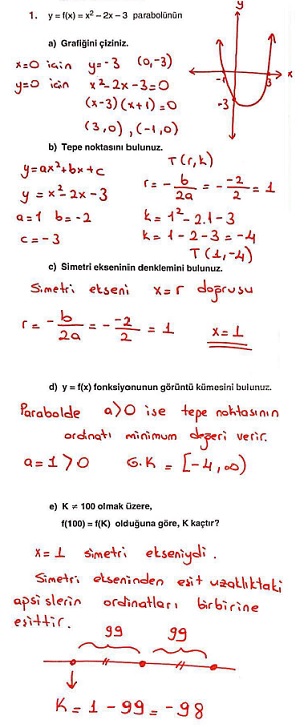 1. y = f(x) = x² – 2x – 3 parabolünün
a) Grafiğini çiziniz.
x=0 için y=-3 (0,-3)
y=0 için x²-2x-3=0
(x-3)(x+1)=0
(3,0),(-1,0)
y
x
-1
3
-3
b) Tepe noktasını bulunuz.
T(r,k)
y=ax²+bx+c
y = x²-2x-3
a=1 b=-2
c=-3
r=-b/2a = - -2/2 = 1
k=1²-2.1-3
k=1-2-3=-4
T(1,-4)
c) Simetri ekseninin denklemini bulunuz.
Simetri ekseni x=r doğrusu
r=-b/2a = - -2/2 = 1 x=1
d) y = f(x) fonksiyonunun görüntü kümesini bulunuz.
Parabolde a>0 ise tepe noktasının
ordinatı minimum değeri verir.
a=1>0 G.K = [-4,∞)
e) K ≠ 100 olmak üzere,
f(100) = f(K) olduğuna göre, K kaçtır?
x=1 simetri ekseniydi.
Simetri ekseninden eşit uzaklıktaki
apsislerin ordinatları birbirine
eşittir.
99 99
K=1-99=-98